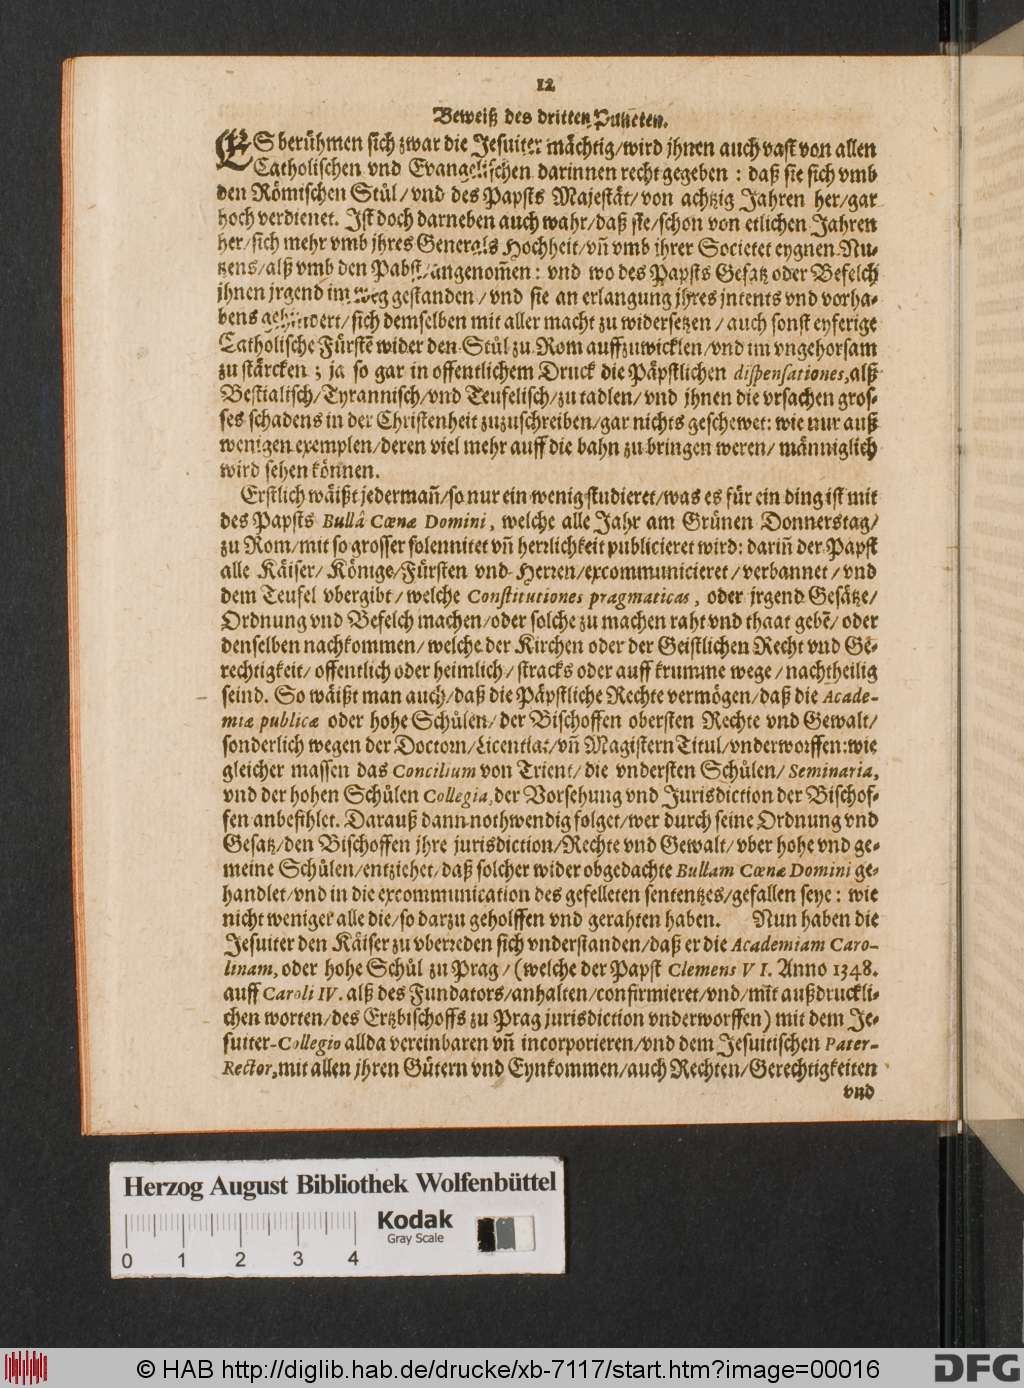 12
Beweiß des dritten Puncten.
ES berühmen sich zwar die Jesuiter mächtig/wird jhnen auch vast von allen
Catholischen vnd Evangelischen darinnen recht gegeben : daß sie sich vmb
den Römischen Stůl/vnd des Papsts Majestät/von achtzig Jahren her/gar
hoch verdienet. Ist doch darneben auch wahr/daß sie/schon von etlichen Jahren
her/sich mehr vmb jhres Generals Hochheit/vñ vmb jhrer Societet eygnen Nu-
tzens/alß vmb den Pabst/angenom̃en : vnd wo des Papsts Gesatz oder Befelch
jhnen jrgend im Weg gestanden/vnd sie an erlangung jhres jntents vnd vorha-
bens gehindert/sich demselben mit aller macht zu widersetzen/auch sonst eyferige
Catholische Fürstẽ wider den Stůl zu Rom auffzuwicklen/vnd im vngehorsam
zu stärcken ; ja so gar in offentlichem Druck die Päpstlichen dispensationes,alß
Bestialisch/Tyrannisch/vnd Teufelisch/zu tadlen/vnd jhnen die vrsachen gros-
ses schadens in der Christenheit zuzuschreiben/gar nichts geschewet: wie nur auß
wenigen exemplen/deren viel mehr auff die bahn zu bringen weren/männiglich
wird sehen können.
Erstlich wäißt jedermañ/so nur ein wenig studieret/was es für ein ding ist mit
des Papsts Bullâ Cœnæ Domini, welche alle Jahr am Grünen Donnerstag/
zu Rom/mit so grosser solennitet vñ herrlichkeit publicieret wird: dariñ der Papst
alle Käiser/Könige/Fürsten vnd Herren/excommunicieret/verbannet/vnd
dem Teufel vbergibt/welche Constitutiones pragmaticas, oder jrgend Gesätze/
Ordnung vnd Befelch machen/oder solche zu machen raht vnd thaat gebẽ/oder
denselben nachkommen/welche der Kirchen oder der Geistlichen Recht vnd Ge-
rechtigkeit/offentlich oder heimlich/stracks oder auff krumme wege/nachtheilig
seind. So wäißt man auch/daß die Päpstliche Rechte vermögen/daß die Acade-
miæ publicæ oder hohe Schůlen/der Bischoffen obersten Rechte vnd Gewalt/
sonderlich wegen der Doctorn/Licentiat/vñ Magistern Titul/vnderworffen:wie
gleicher massen das Concilium von Trient/die vndersten Schůlen/Seminaria,
vnd der hohen Schůlen Collegia,der Vorsehung vnd Jurisdiction der Bischof-
fen anbefihlet. Darauß dann nothwendig folget/wer durch seine Ordnung vnd
Gesatz/den Bischoffen jhre jurisdiction/Rechte vnd Gewalt/vber hohe vnd ge-
meine Schůlen/entziehet/daß solcher wider obgedachte Bullam Cœnæ Domini ge-
handlet/vnd in die excommunication des gefelleten sententzes/gefallen seye : wie
nicht weniger alle die/so darzu geholffen vnd gerahten haben. Nun haben die
Jesuiter den Käiser zu vberreden sich vnderstanden/daß er die Academiam Caro-
linam,oder hohe Schůl zu Prag/(welche der Papst Clemens VI. Anno 1348.
auff Caroli IV. alß des Fundators/anhalten/confirmieret/vnd/mit außdruckli-
chen worten/des Ertzbischoffs zu Prag jurisdiction vnderworffen) mit dem Je-
suiter-Collegio allda vereinbaren vñ incorporieren/vnd dem Jesuitischen Pater-
Rector,mit allen jhren Gütern vnd Eynkommen/auch Rechten/Gerechtigkeiten
vnd
Herzog August Bibliothek Wolfenbüttel
Kodak
Gray Scale
0 1 2 3 4
© HAB http://diglib.hab.de/drucke/xb-7117/start.htm?image=00016
DFG